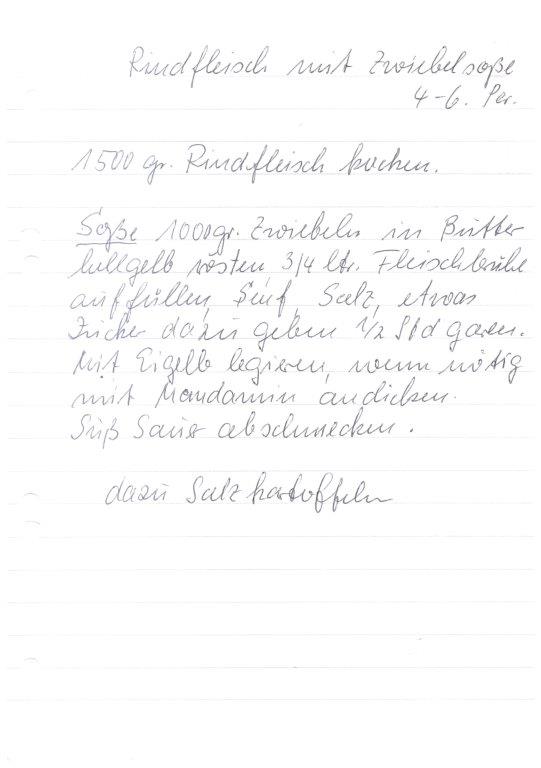 Rindfleisch mit Zwiebelsoße
4-6. Per.
1500 gr. Rindfleisch kochen.
Soße 1000gr. Zwiebeln in Butter
hellgelb rösten, 3/4 ltr. Fleischbrühe
auffüllen, Senf, Salz, etwas
Zucker dazu geben 1/2 Std garen.
Mit Eigelb legieren, wenn nötig
mit Mondamin andicken.
Süß Sauer abschmecken.
dazu Salzkartoffeln